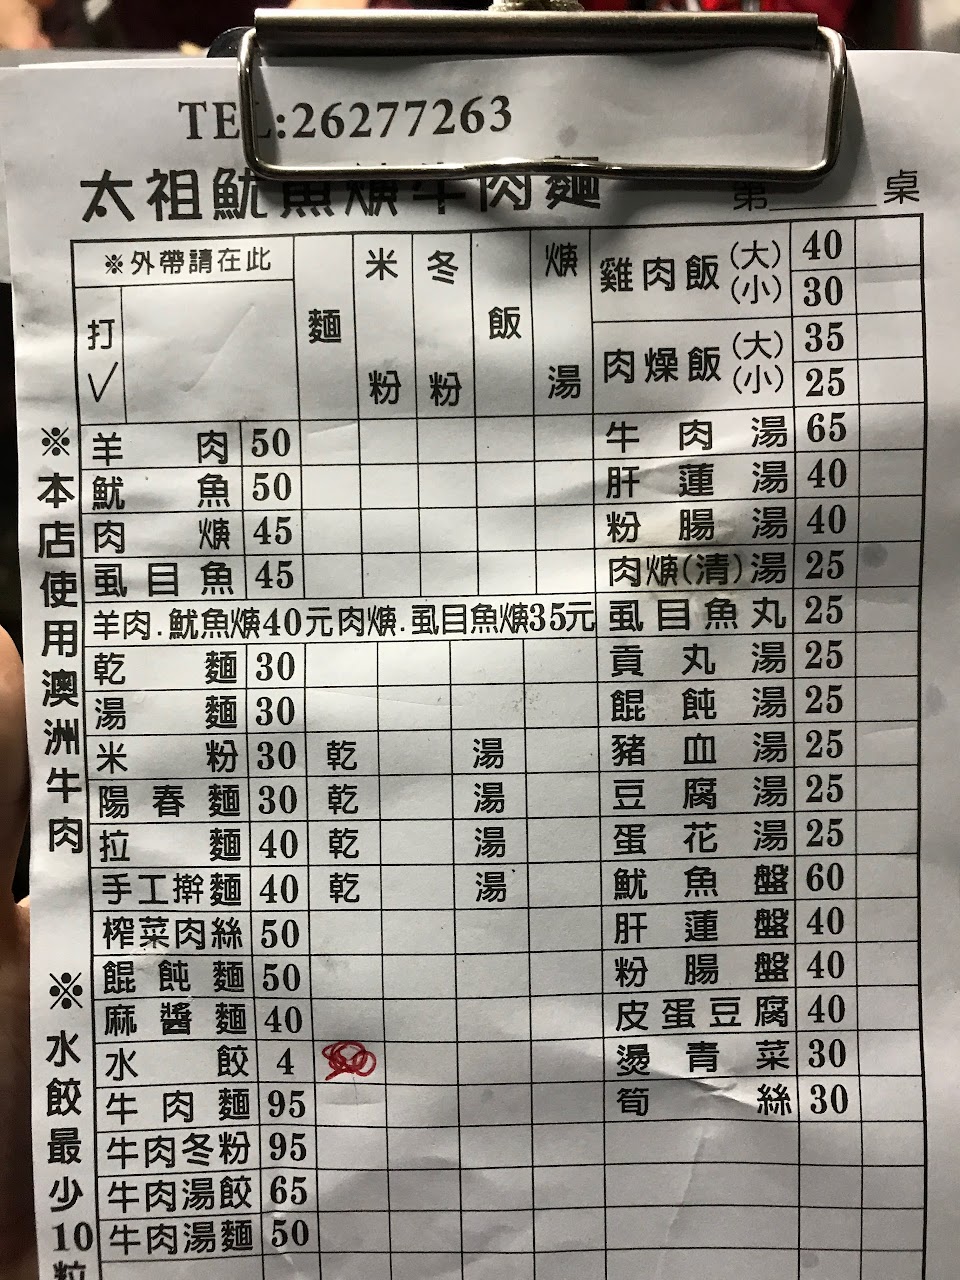 TEL:26277263
太祖魷魚焿牛肉麵
第 桌
※外帶請在此
打
✓
麵 米粉 冬粉 飯 焿湯
羊肉 50
魷魚 50
肉焿 45
虱目魚 45
羊肉.魷魚焿40元肉焿.虱目魚焿35元
乾麵 30
湯麵 30
米粉 30 乾 湯
陽春麵 30 乾 湯
拉麵 40 乾 湯
手工擀麵 40 乾 湯
榨菜肉絲 50
餛飩麵 50
麻醬麵 40
水餃 4
牛肉麵 95
牛肉冬粉 95
牛肉湯餃 65
牛肉湯麵 50
雞肉飯 (大) 40
(小) 30
肉燥飯 (大) 35
(小) 25
牛肉湯 65
肝蓮湯 40
粉腸湯 40
肉焿(清)湯 25
虱目魚丸 25
貢丸湯 25
餛飩湯 25
豬血湯 25
豆腐湯 25
蛋花湯 25
魷魚盤 60
肝蓮盤 40
粉腸盤 40
皮蛋豆腐 40
燙青菜 30
筍絲 30
※本店使用澳洲牛肉
※水餃最少10粒